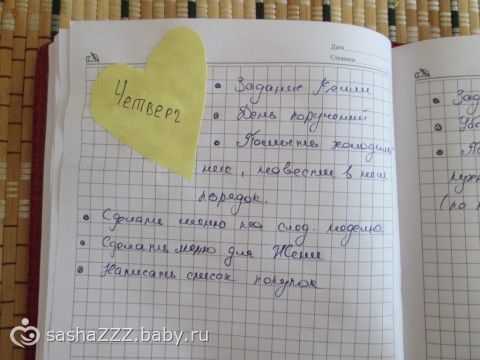 Дата
Страница
Четверг
• Задание Келли
• День поручений
• Помыть холодиль-
ник, навести в нем
порядок.
• Сделать меню на след. неделю
• Сделать меню для Жени
• Написать список покупок
• Зад
• Убо
• По
(по
sashaZZZ.baby.ru